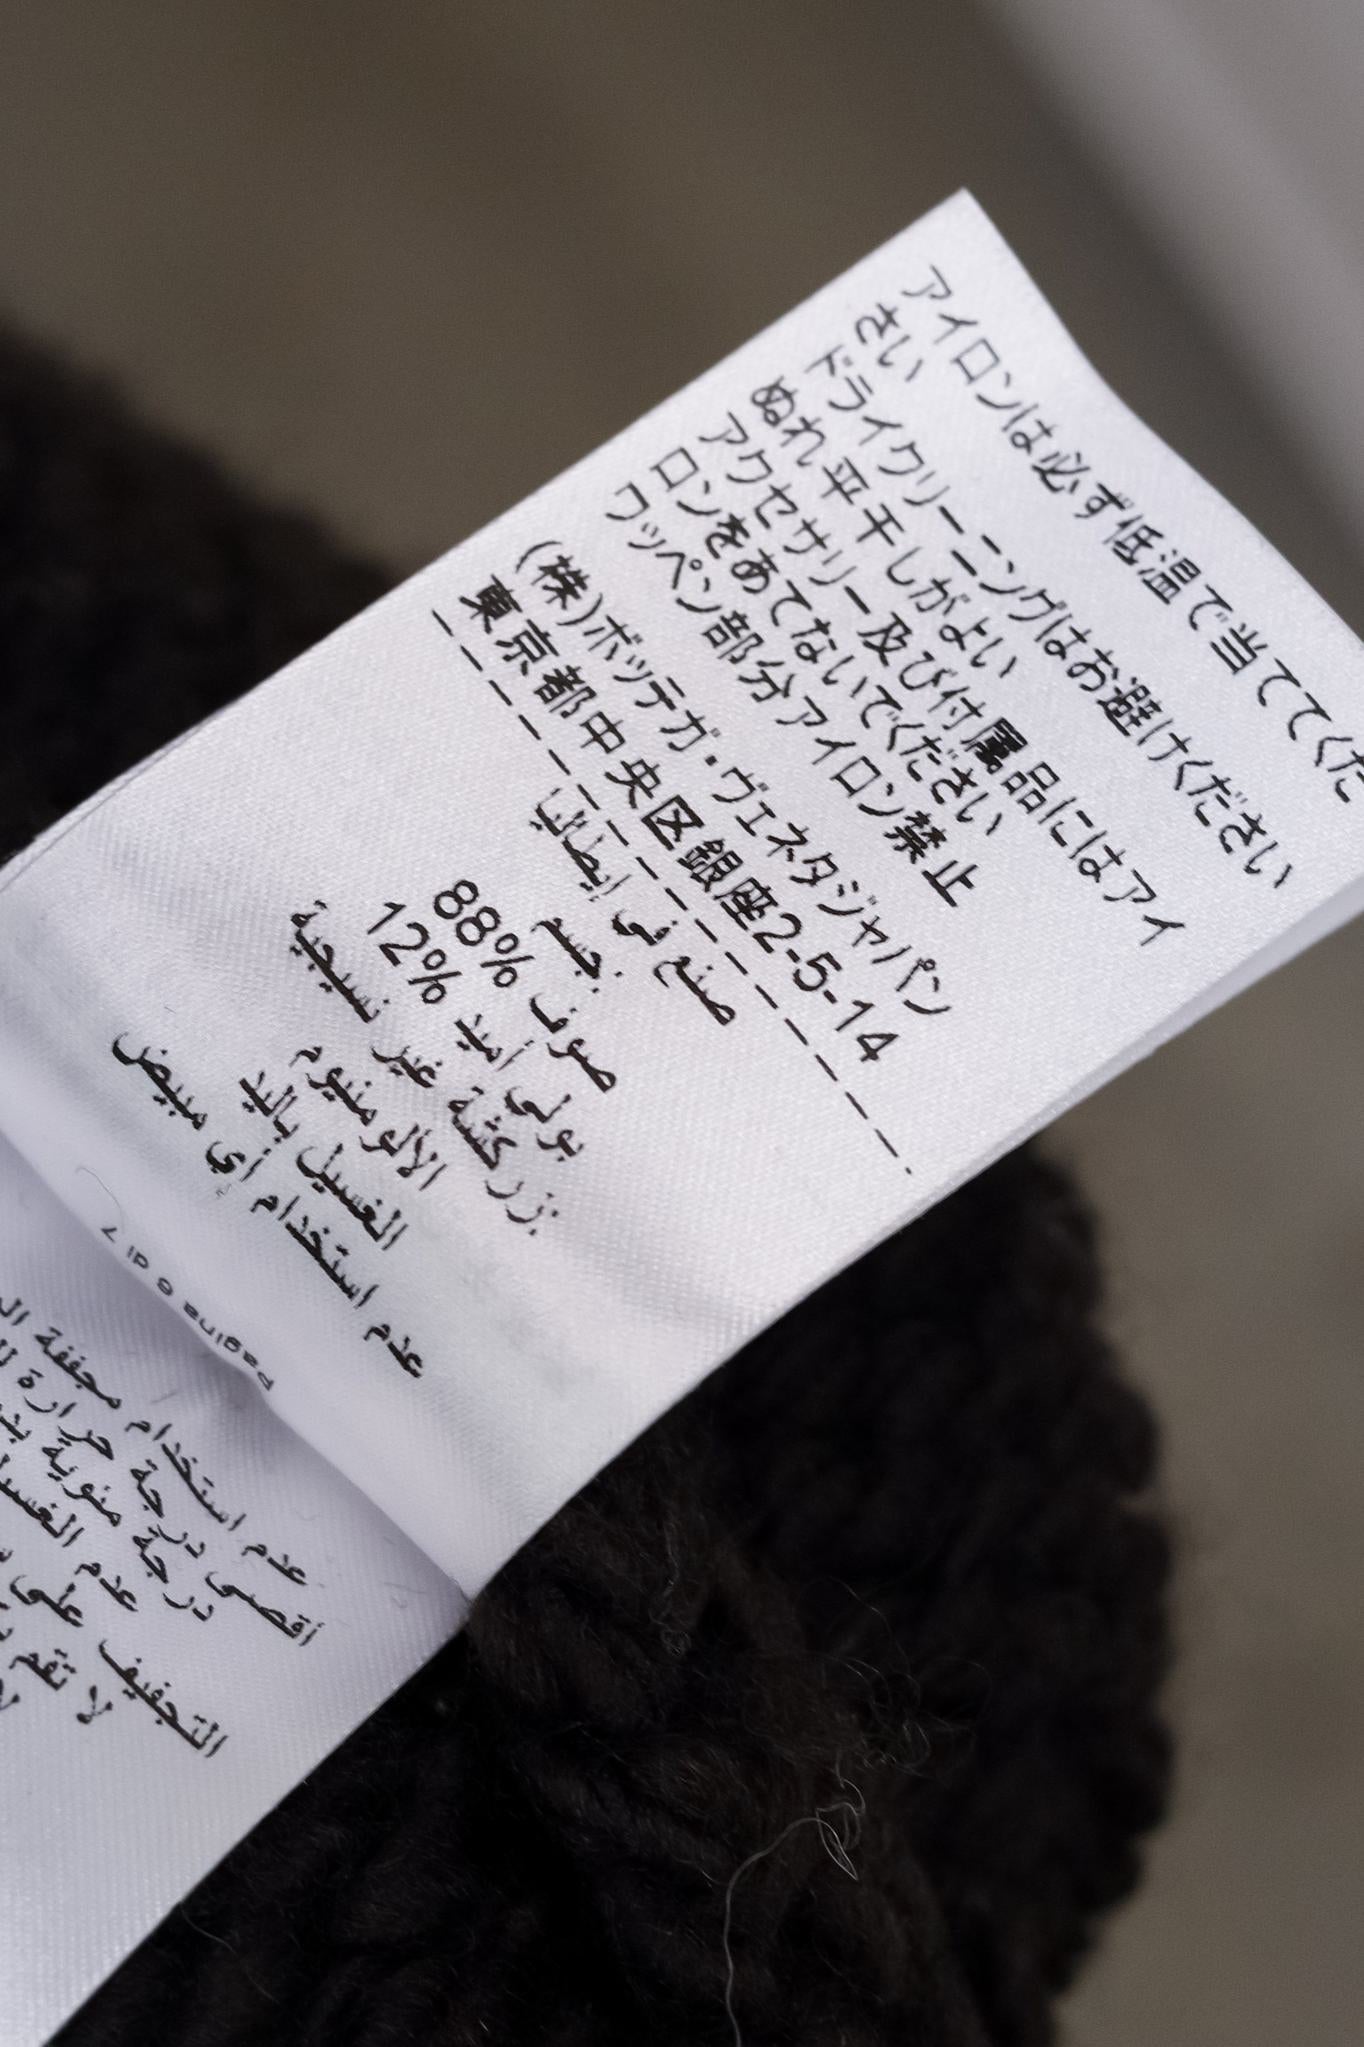 アイロンは必ず低温で当ててくだ
さい
ドライクリーニングはお避けください
ぬれ平干しがよい
アクセサリー及び付属品にはアイ
ロンをあてないでください
ワッペン部分アイロン禁止
(株)ボッテガ・ヴェネタジャパン
東京都中央区銀座2-5-14
صنع في إيطاليا
جسم:
صوف 88%
بولي أميد 12%
زركشة غير نسيجية:
الألومنيوم
الغسيل باليد
عدم استخدام أي مبيض
Pagina 6 di 7
عدم استخدام مجففة
أقصى درجة حرارة
درجة مئوية
عدم
التجفيف على
لا تقم